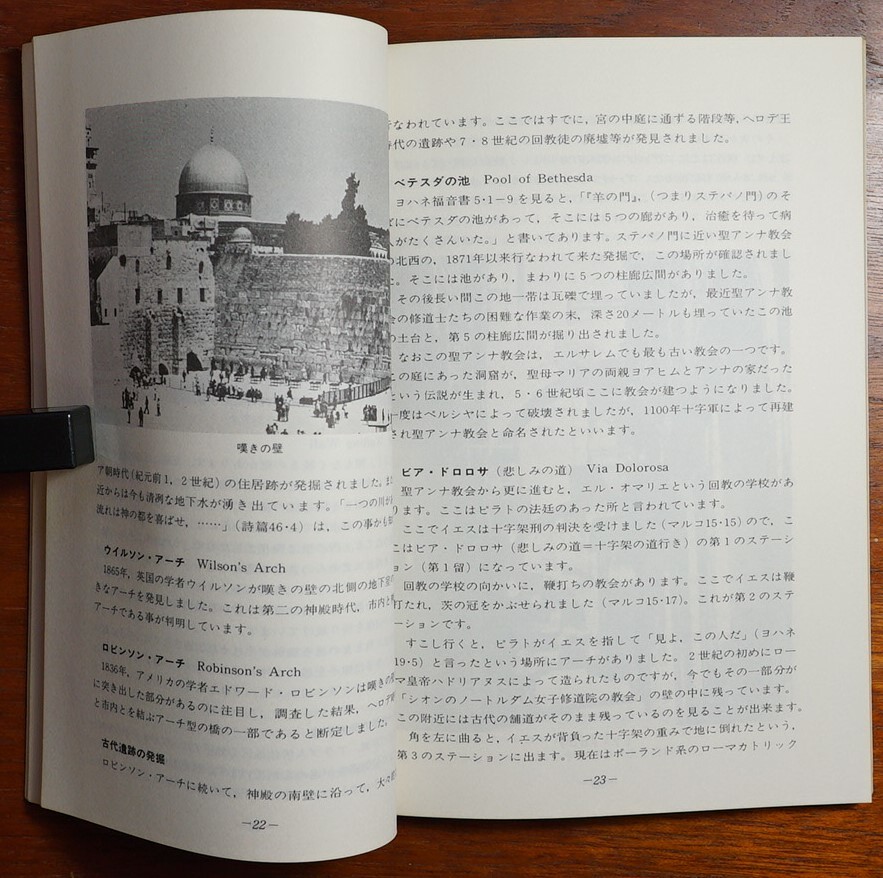 嘆きの壁
ア朝時代(紀元前1,2世紀)の住居跡が発掘されました。
近からは今も清冽な地下水が湧き出ています。「一つの川が
流れは神の都を喜ばせ,……」(詩篇46・4)は,この事が
ウイルソン・アーチ Wilson's Arch
1865年,英国の学者ウイルソンが嘆きの壁の北側の地下
きなアーチを発見しました。これは第二の神殿時代,市内と
アーチである事が判明しています。
ロビンソン・アーチ Robinson's Arch
1836年,アメリカの学者エドワード・ロビンソンは嘆きの
に突き出した部分があるのに注目し,調査した結果,ヘロデ
と市内とを結ぶアーチ型の橋の一部であると断定しました。
古代遺跡の発掘
ロビンソン・アーチに続いて,神殿の南壁に沿って,大
—22—
なわれています。ここではすでに,宮の中庭に通ずる階段等,ヘロデ王
代の遺跡や7・8世紀の回教徒の廃墟等が発見されました。
ベテスダの池 Pool of Bethesda
ヨハネ福音書5・1−9を見ると,「『羊の門』,(つまりステパノ門)のそ
にベテスダの池があって,そこには5つの廊があり,治癒を待って病
がたくさんいた。」と書いてあります。ステパノ門に近い聖アンナ教会
の北西の,1871年以来行なわれて来た発掘で,この場所が確認されまし
。そこには池があり,まわりに5つの柱廊広間がありました。
その後長い間この地一帯は瓦礫で埋っていましたが,最近聖アンナ教
会の修道士たちの困難な作業の末,深さ20メートルも埋っていたこの池
の土台と,第5の柱廊広間が掘り出されました。
なおこの聖アンナ教会は,エルサレムでも最も古い教会の一つです。
この庭にあった洞窟が,聖母マリアの両親ヨアヒムとアンナの家だった
という伝説が生まれ,5・6世紀頃ここに教会が建つようになりました。
一度はペルシヤによって破壊されましたが,1100年十字軍によって再建
され聖アンナ教会と命名されたといいます。
ビア・ドロロサ(悲しみの道) Via Dolorosa
聖アンナ教会から更に進むと,エル・オマリエという回教の学校があ
ります。ここはピラトの法廷のあった所と言われています。
ここでイエスは十字架刑の判決を受けました(マルコ15・15)ので,こ
こはビア・ドロロサ(悲しみの道＝十字架の道行き)の第1のステーシ
ョン(第1留)になっています。
回教の学校の向かいに,鞭打ちの教会があります。ここでイエスは鞭
打たれ,茨の冠をかぶせられました(マルコ15・17)。これが第2のステ
ーションです。
すこし行くと,ピラトがイエスを指して「見よ,この人だ」(ヨハネ
19・5)と言ったという場所にアーチがありました。2世紀の初めにロー
マ皇帝ハドリアヌスによって造られたものですが,今でもその一部分が
「シオンのノートルダム女子修道院の教会」の壁の中に残っています。
この附近には古代の舗道がそのまま残っているのを見ることが出来ます。
角を左に曲ると,イエスが背負った十字架の重みで地に倒れたという,
第3のステーションに出ます。現在はポーランド系のローマカトリック
—23—